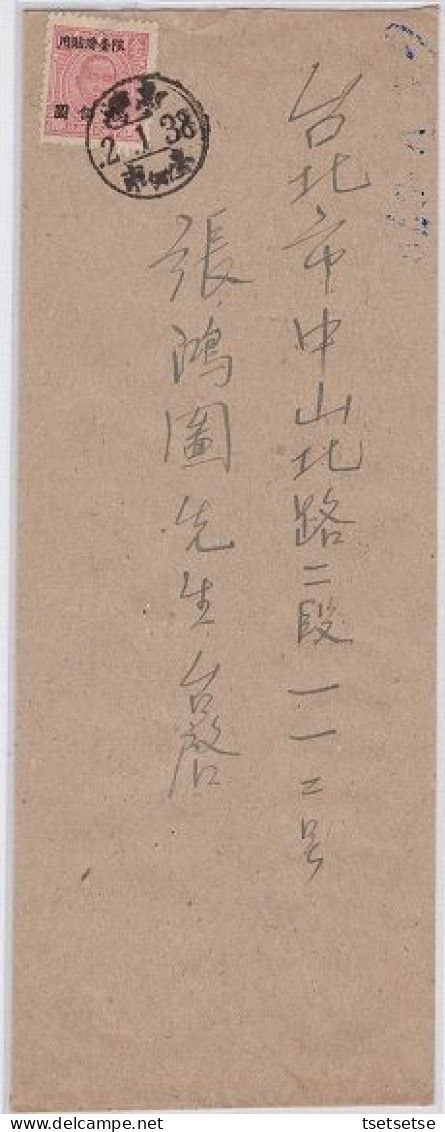 台北市中山北路二段一一二号
張鴻圖先生台啓
用貼灣臺限
圓
2.1.38
tsetsetse
Delcampe.net